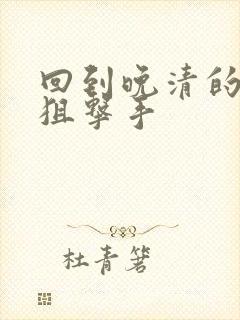 回到晚清的
狙撃手
杜青箬